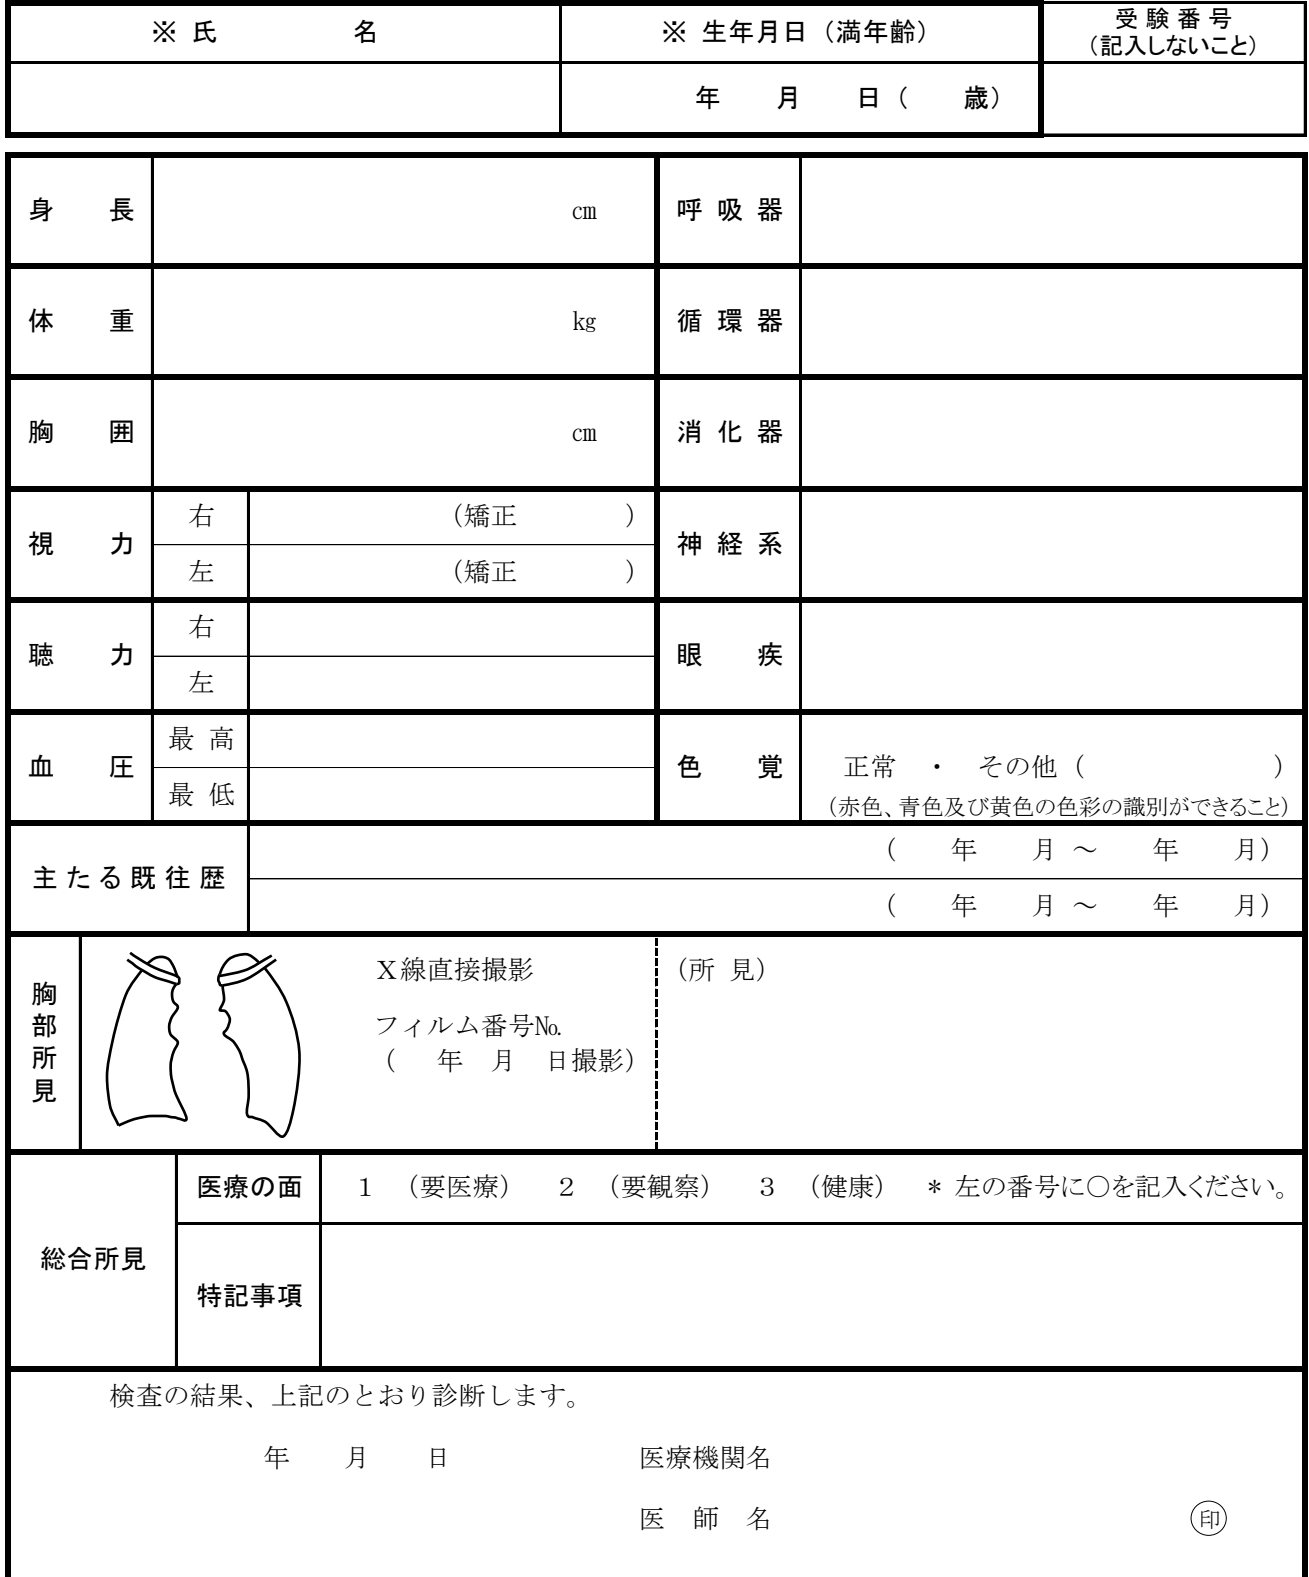 ※ 氏　　　　　名　　※ 生年月日（満年齢）　　受 験 番 号
（記入しないこと）
年　　月　　日（　　歳）
身　　長　　cm　　呼 吸 器
体　　重　　kg　　循 環 器
胸　　囲　　cm　　消 化 器
視　　力　　神 経 系
右　　（矯正　　　　）
左　　（矯正　　　　）
聴　　力　　眼　　疾
右
左
血　　圧　　色　　覚
最 高
最 低
正常　・　その他（　　　　　　　）
（赤色、青色及び黄色の色彩の識別ができること）
主 た る 既 往 歴
（　　年　　月 ～　　年　　月）
（　　年　　月 ～　　年　　月）
胸部所見
Ｘ線直接撮影　　（所 見）
フィルム番号№
（　年　月　日撮影）
総合所見
医療の面　　１　（要医療）　２　（要観察）　３　（健康）　＊ 左の番号に○を記入ください。
特記事項
検査の結果、上記のとおり診断します。
年　　月　　日　　　　医療機関名
医　師　名　　　　印